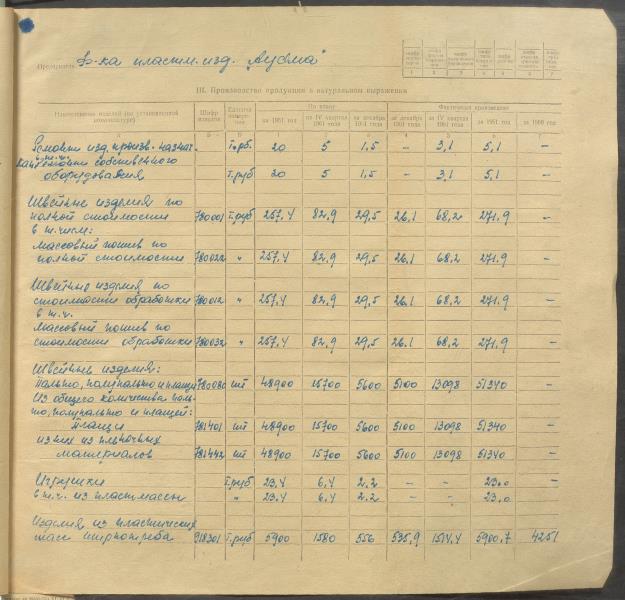 Предприятие Ф-ка пластм. изд. „Аусма"
III. Производство продукции в натуральном выражении
Наименование изделий (по установленной номенклатуре) Шифр изделий Единица измерен. По плану Фактически произведено
на 1961 год на IV квартал 1961 года на декабрь 1961 года за декабрь 1961 года за IV квартал 1961 года за 1961 год за 1960 год
Ремонт изд. произв. назнач. т.руб. 20 5 1,5 – 3,1 5,1 –
в т.ч.
ремонт собственного
оборудования т.руб 20 5 1,5 – 3,1 5,1 –
Швейные изделия по
полной стоимости 780001 т.руб 257,4 82,9 29,5 26,1 68,2 271,9 –
в т.числе:
Массовый пошив по
полной стоимости 780022 " 257,4 82,9 29,5 26,1 68,2 271,9 –
Швейные изделия по
стоимости обработки 780012 " 257,4 82,9 29,5 26,1 68,2 271,9 –
в т.ч.
Массовый пошив по
стоимости обработки 780032 " 257,4 82,9 29,5 26.1 68,2 271,9 –
Швейные изделия:
Пальто, полупальто и плащи 780080 шт 48900 15700 5600 5100 13098 51340 –
Из общего количества паль-
то, полупальто и плащей:
плащи 781401 шт 48900 15700 5600 5100 13098 51340 –
из них из пленочных
материалов 781442 шт 48900 15700 5600 5100 13098 51340 –
Игрушки т.руб 23,4 6,4 2.2 – – 23.0 –
в т.ч. из пластмассы " 23,4 6,4 2.2 – – 23,0
Изделия из пластических
масс ширпотреба 918301 т.руб 5900 1580 556 535,9 1514,4 5900,7 4251